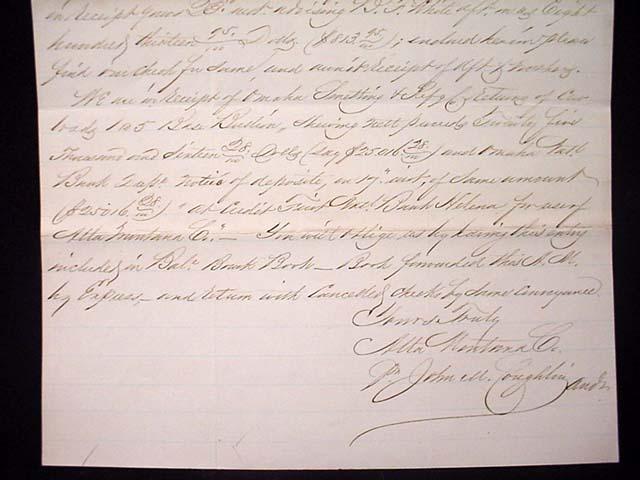 in Receipt yours inst. advising D. T. White dft. on us Eight
hundred & thirteen 95/100 Dolls ($813 95/100); enclosed herein please
find our check for same, and await Receipt of dft &
We are in Receipt of Omaha Smelting & Refg Co Returns of Car
loads 1 a 5 Base Bullion, shewing nett proceeds Twenty five
Thousand and Sixteen 28/100 Dolls (say $25016 28/100) and Omaha Natl
Bank Dupt. notice of deposite, on 19" inst, of same amount
($25016 28/100) "at Credit First Natl Bank Helena for use of
Alta Montana Co." — You will oblige us by having this entry
included in Bank Book — Book forwarded this A.M.
by Express, — and return with Cancelled checks by same conveyance
Yours Truly
Alta Montana Co.
Pr John M. Coughlin